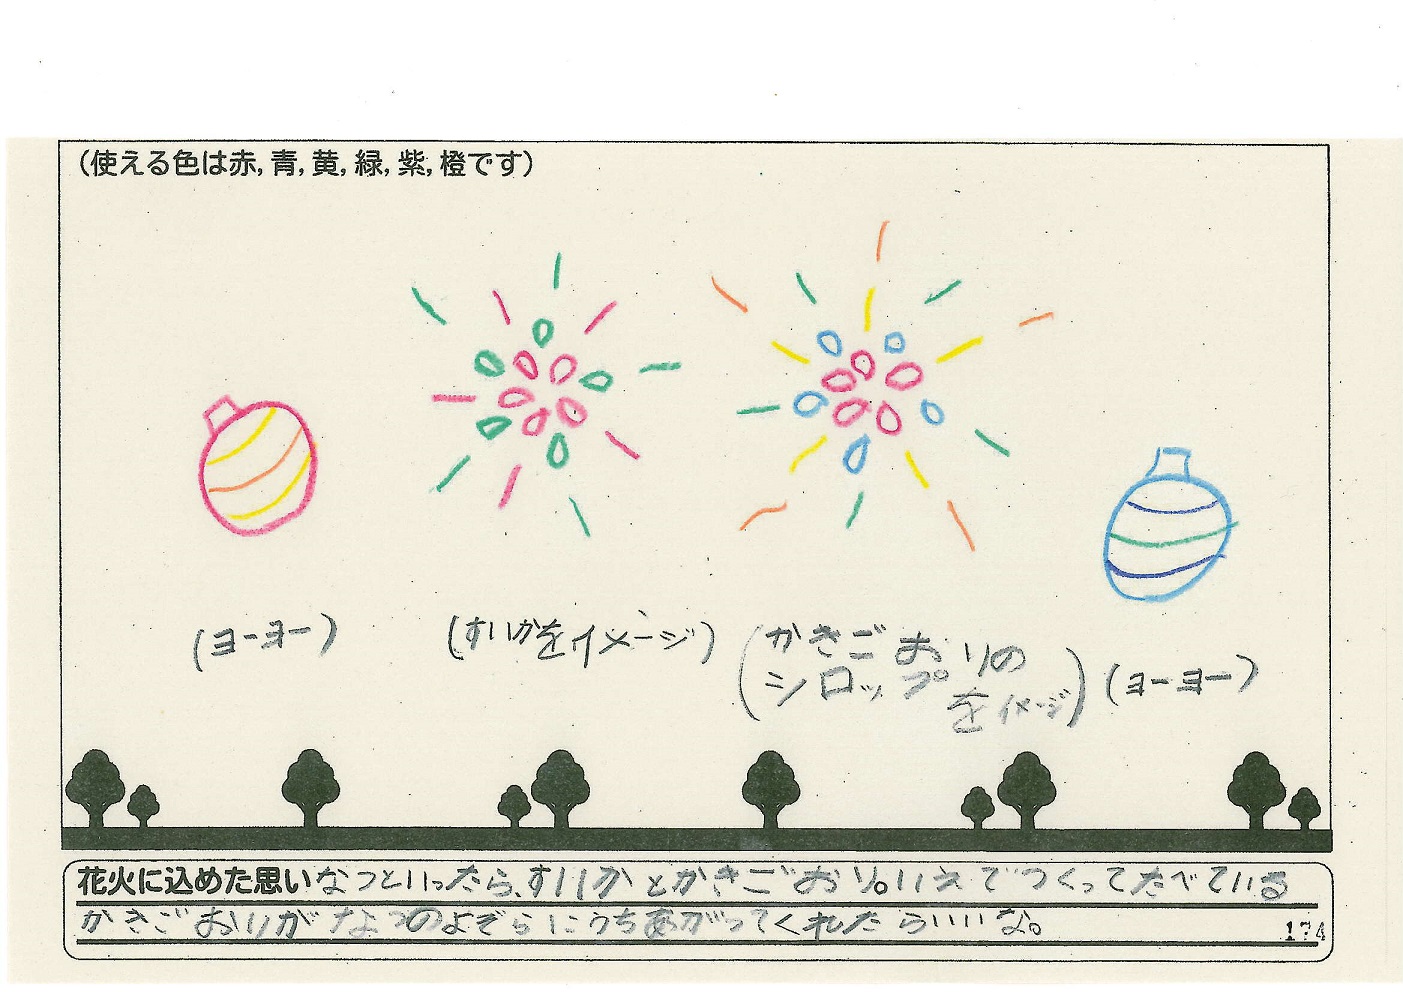 (使える色は赤,青,黄,緑,紫,橙です)
(ヨーヨー)
(すいかをイメージ)
(かきごおりの
シロップ
をイメージ)
(ヨーヨー)
花火に込めた思い なつといったら、すいかとかきごおり。いえでつくってたべている
かきごおりがなつのよぞらにうちあがってくれたらいいな。
174